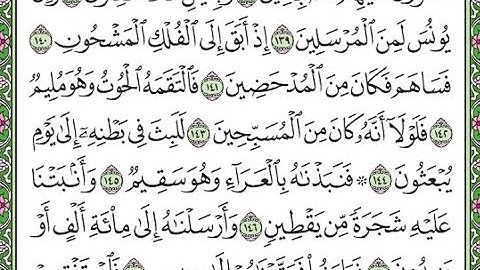 يُونُسَ لَمِنَ ٱلْمُرْسَلِينَ ١٣٩ إِذْ أَبَقَ إِلَى ٱلْفُلْكِ ٱلْمَشْحُونِ ١٤٠
فَسَاهَمَ فَكَانَ مِنَ ٱلْمُدْحَضِينَ ١٤١ فَٱلْتَقَمَهُ ٱلْحُوتُ وَهُوَ مُلِيمٌ
١٤٢ فَلَوْلَآ أَنَّهُۥ كَانَ مِنَ ٱلْمُسَبِّحِينَ ١٤٣ لَلَبِثَ فِى بَطْنِهِۦٓ إِلَىٰ يَوْمِ
يُبْعَثُونَ ١٤٤ ۞ فَنَبَذْنَٰهُ بِٱلْعَرَآءِ وَهُوَ سَقِيمٌ ١٤٥ وَأَنۢبَتْنَا
عَلَيْهِ شَجَرَةً مِّن يَقْطِينٍ ١٤٦ وَأَرْسَلْنَٰهُ إِلَىٰ مِا۟ئَةِ أَلْفٍ أَوْ